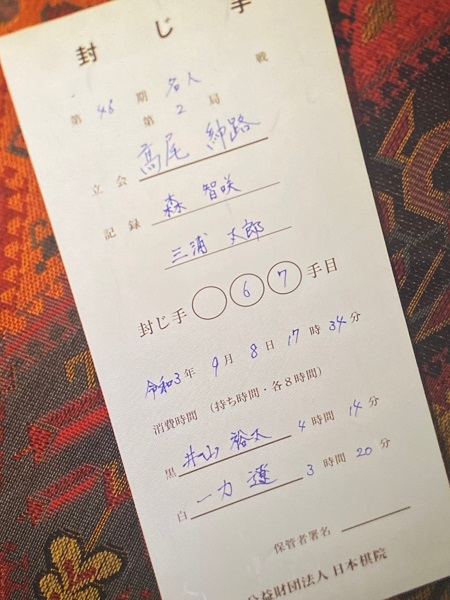 封じ手
第46期 名人 戦
第2局
立会 高尾 紳路
記録 森 智咲
三浦 太郎
封じ手 67手目
令和3年 9月 8日 17時 34分
消費時間 (持ち時間・各8時間)
黒 井山 裕太 4時間 14分
白 一力 遼 3時間 20分
保管者署名
公益財団法人 日本棋院